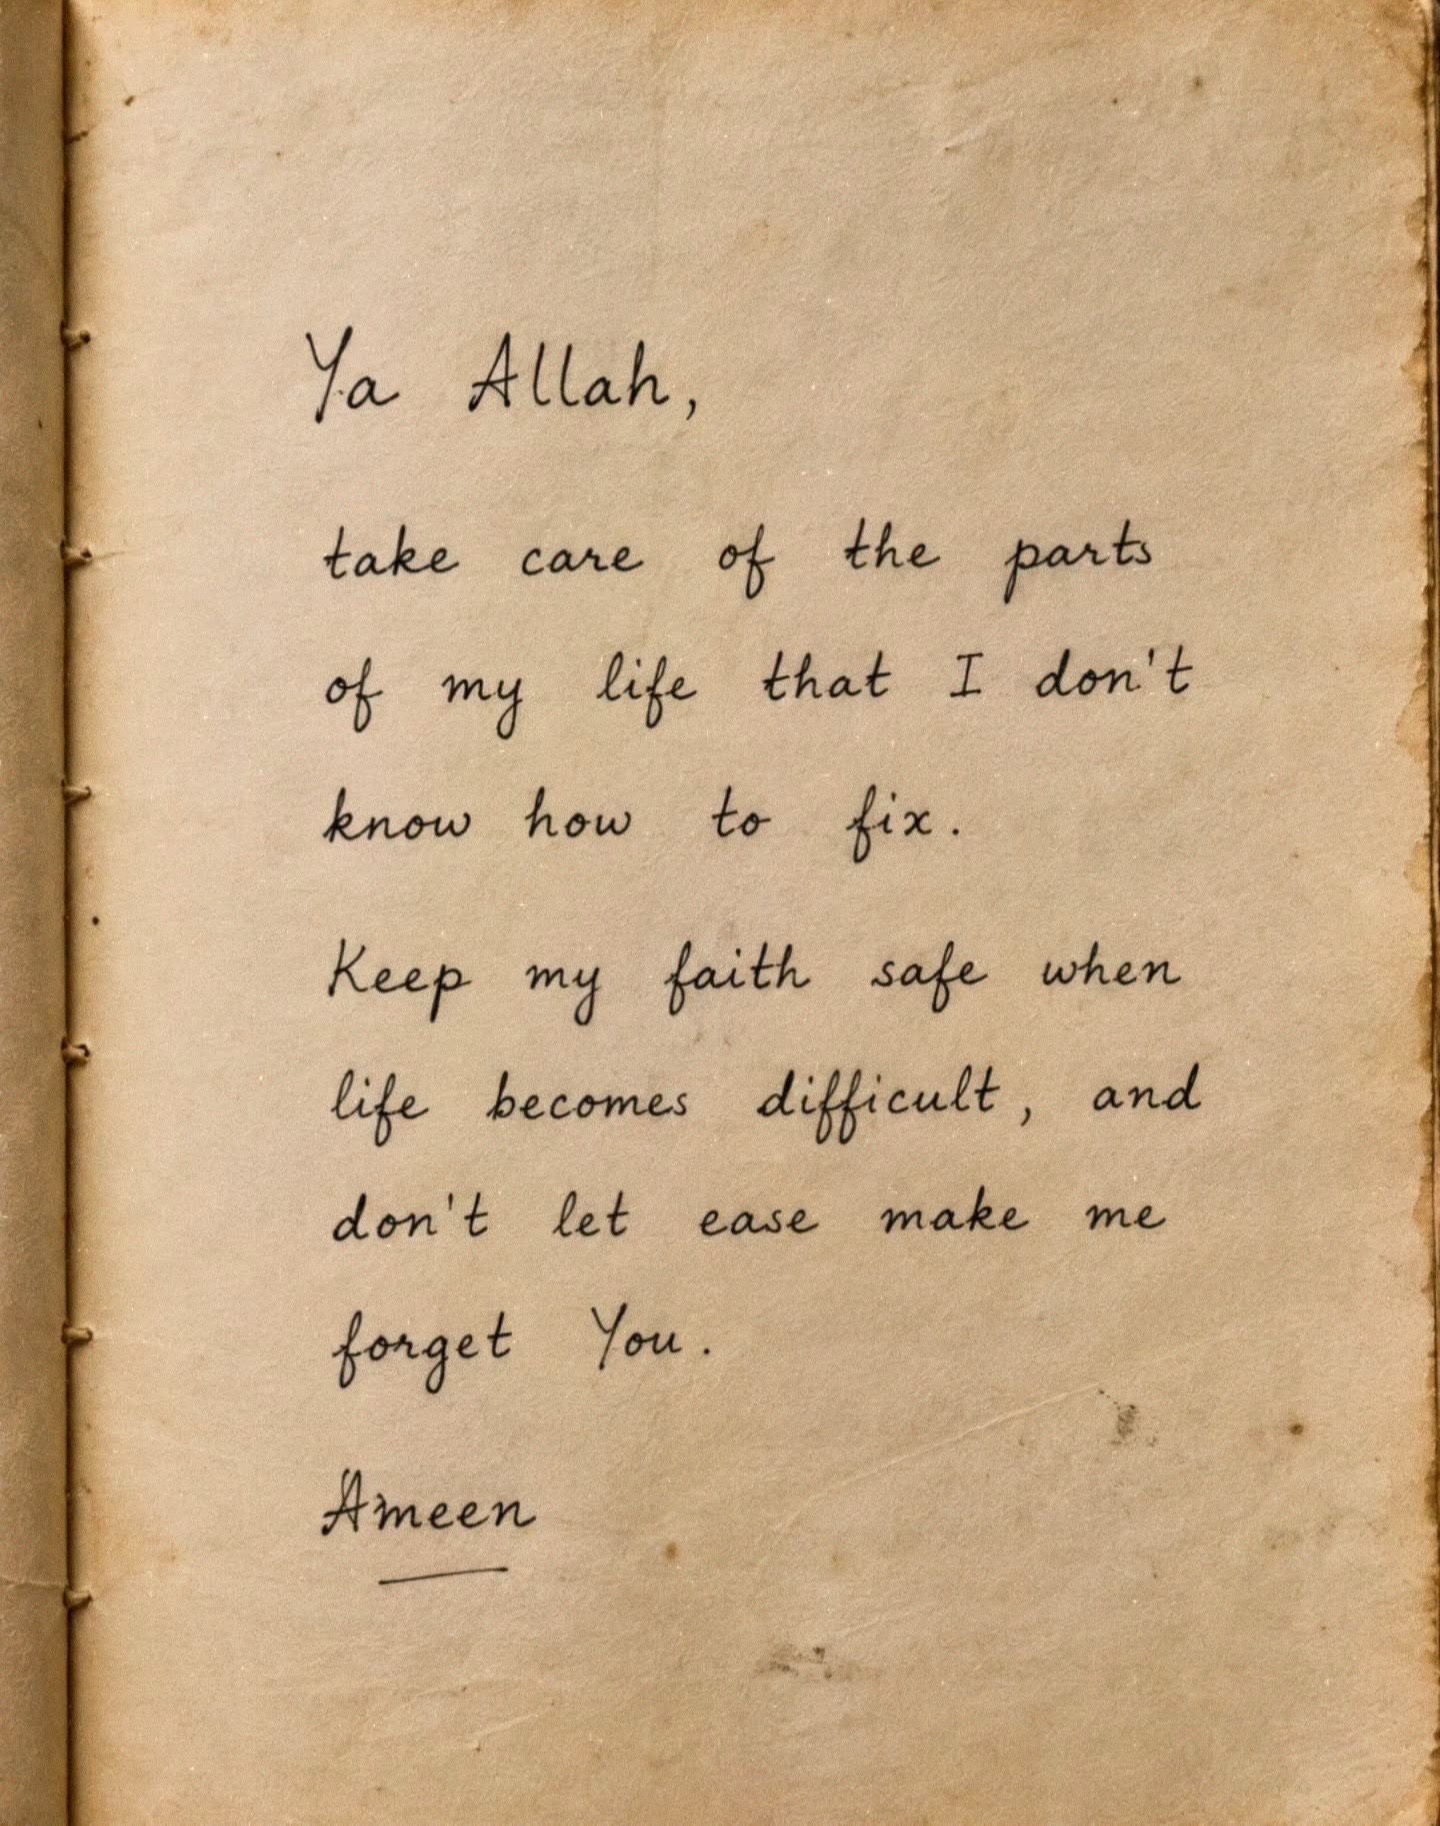 Ya Allah,
take care of the parts
of my life that I don't
know how to fix.
Keep my faith safe when
life becomes difficult, and
don't let ease make me
forget You.
Ameen